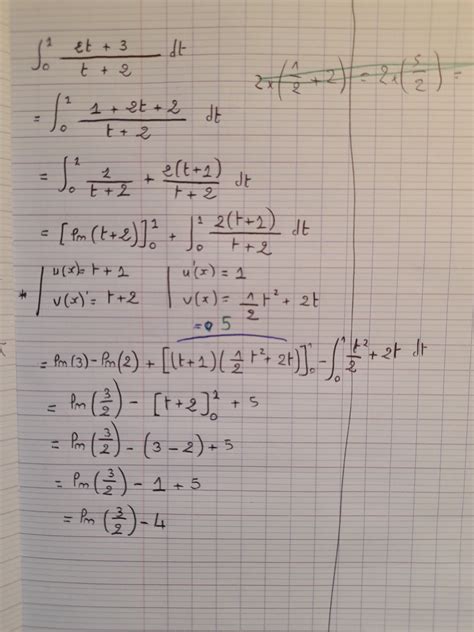 ∫₀¹ (2t + 3)/(t + 2) dt
2×(1/2 + 2) = 2×(5/2) =
= ∫₀¹ (1 + 2t + 2)/(t + 2) dt
= ∫₀¹ 1/(t + 2) + 2(t+1)/(t + 2) dt
= [ln(t+2)]₀¹ + ∫₀¹ 2(t+1)/(t + 2) dt
* | u(x) = t + 1 | u'(x) = 1
| v(x)' = t+2 | v(x) = 1/2 t² + 2t
= 5
= ln(3) - ln(2) + [(t+1)(1/2 t² + 2t)]₀¹ - ∫₀¹ t²/2 + 2t dt
= ln(3/2) - [t+2]₀¹ + 5
= ln(3/2) - (3 - 2) + 5
= ln(3/2) - 1 + 5
= ln(3/2) - 4